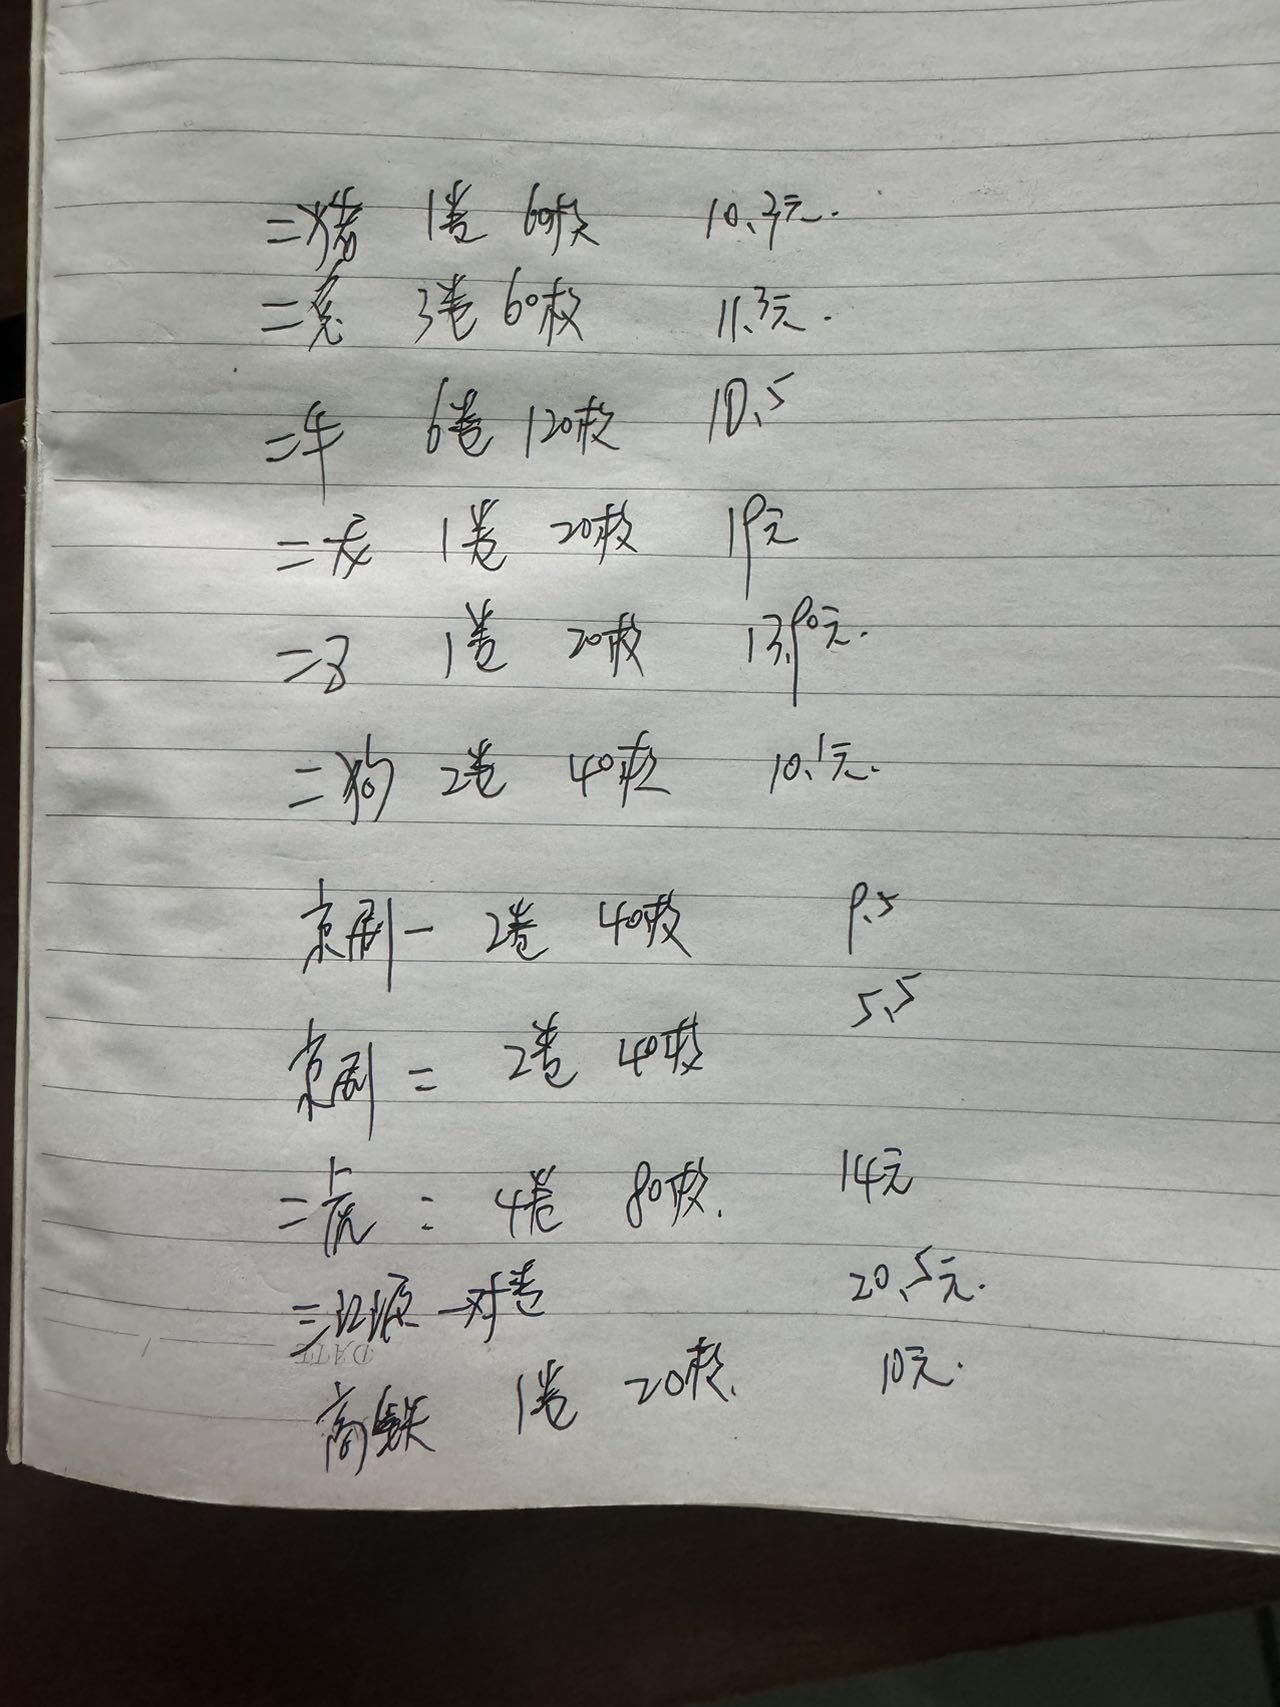 二猪 1卷 60枚 10.3元.
二兔 3卷 60枚 11.3元.
二牛 6卷 120枚 10.5
二龙 1卷 20枚 19元
二 1卷 20枚 13.90元.
二狗 2卷 40枚 10.1元.
京剧一 2卷 40枚 9.5
京剧二 2卷 40枚 5.5
二虎: 4卷 80枚. 14元
三江源 一对卷 20.5元.
高铁 1卷 20枚. 10元.